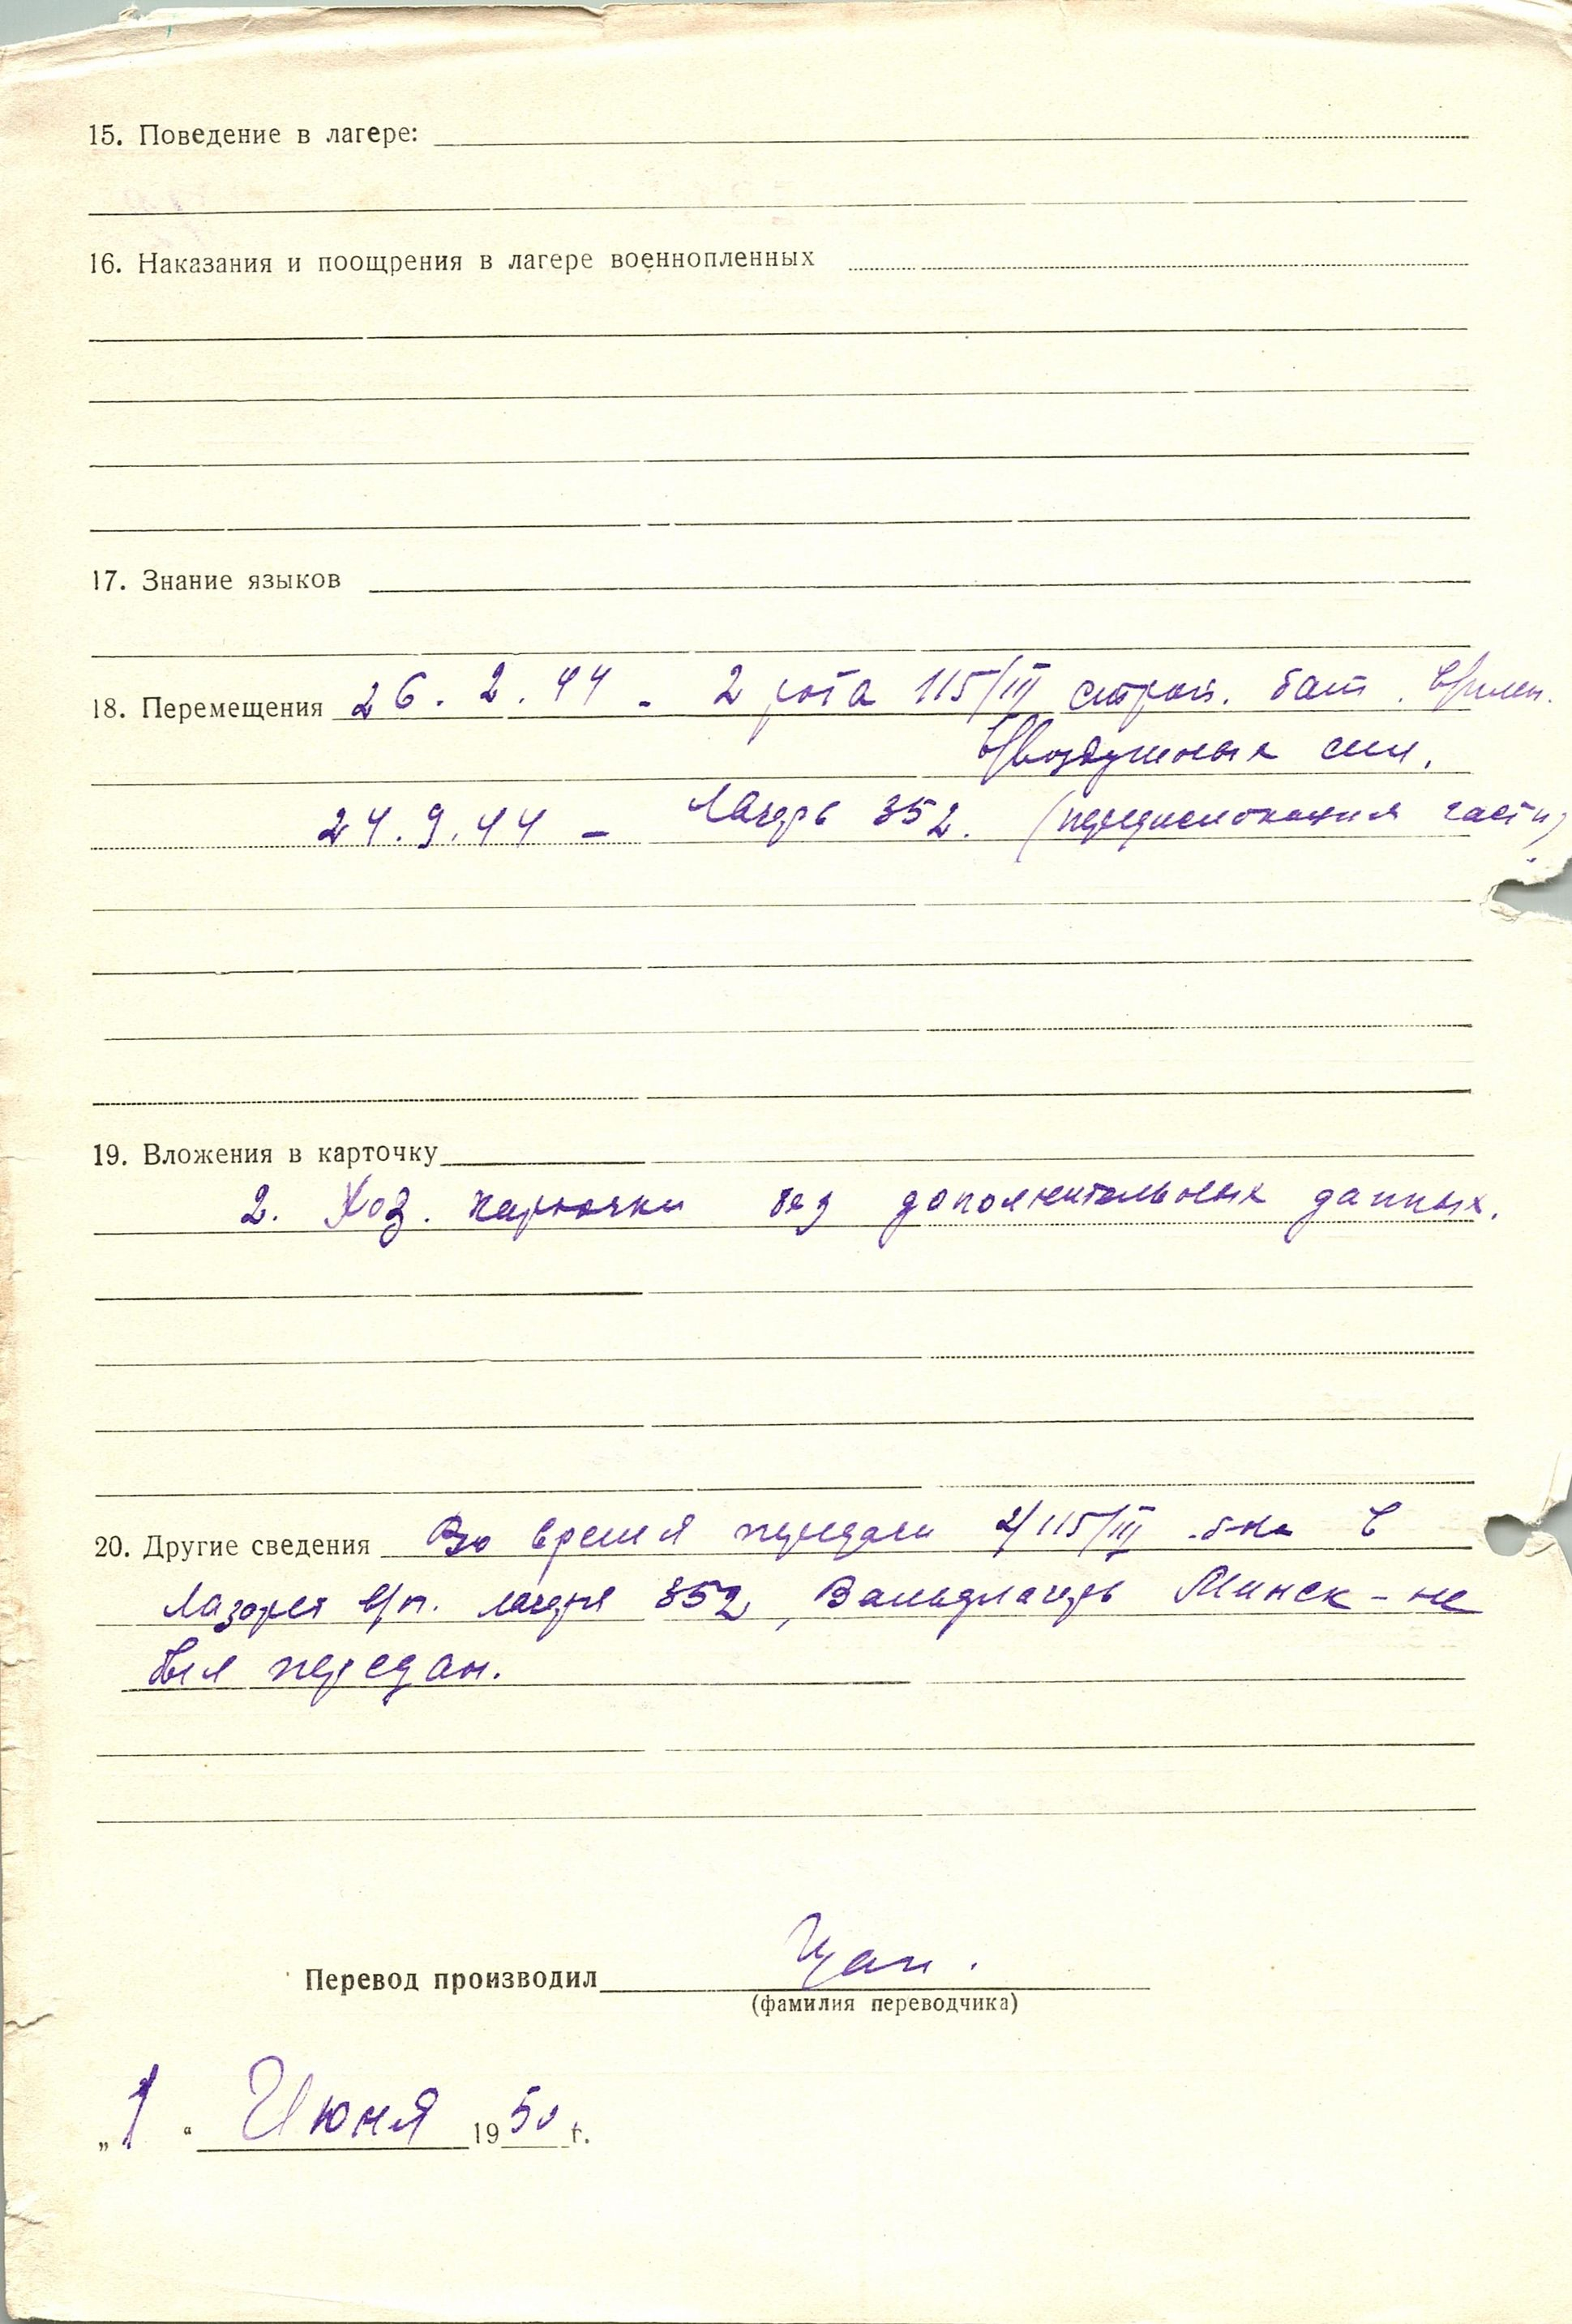 15. Поведение в лагере:
16. Наказания и поощрения в лагере военнопленных
17. Знание языков
18. Перемещения 26. 2. 44 - 2 рота 115/III строй. бат. в/плен.
воздушных сил.
24. 9. 44 - Лагерь 352. (передислокация части)
19. Вложения в карточку
2. Хоз. карточки без дополнительных данных.
20. Другие сведения Во время передачи 2/115/III б-на в
лазарет в/п. лагеря 352, Вальдлагерь Минск - не
был передан.
Перевод производил
(фамилия переводчика)
„1“ Июня 1950 г.